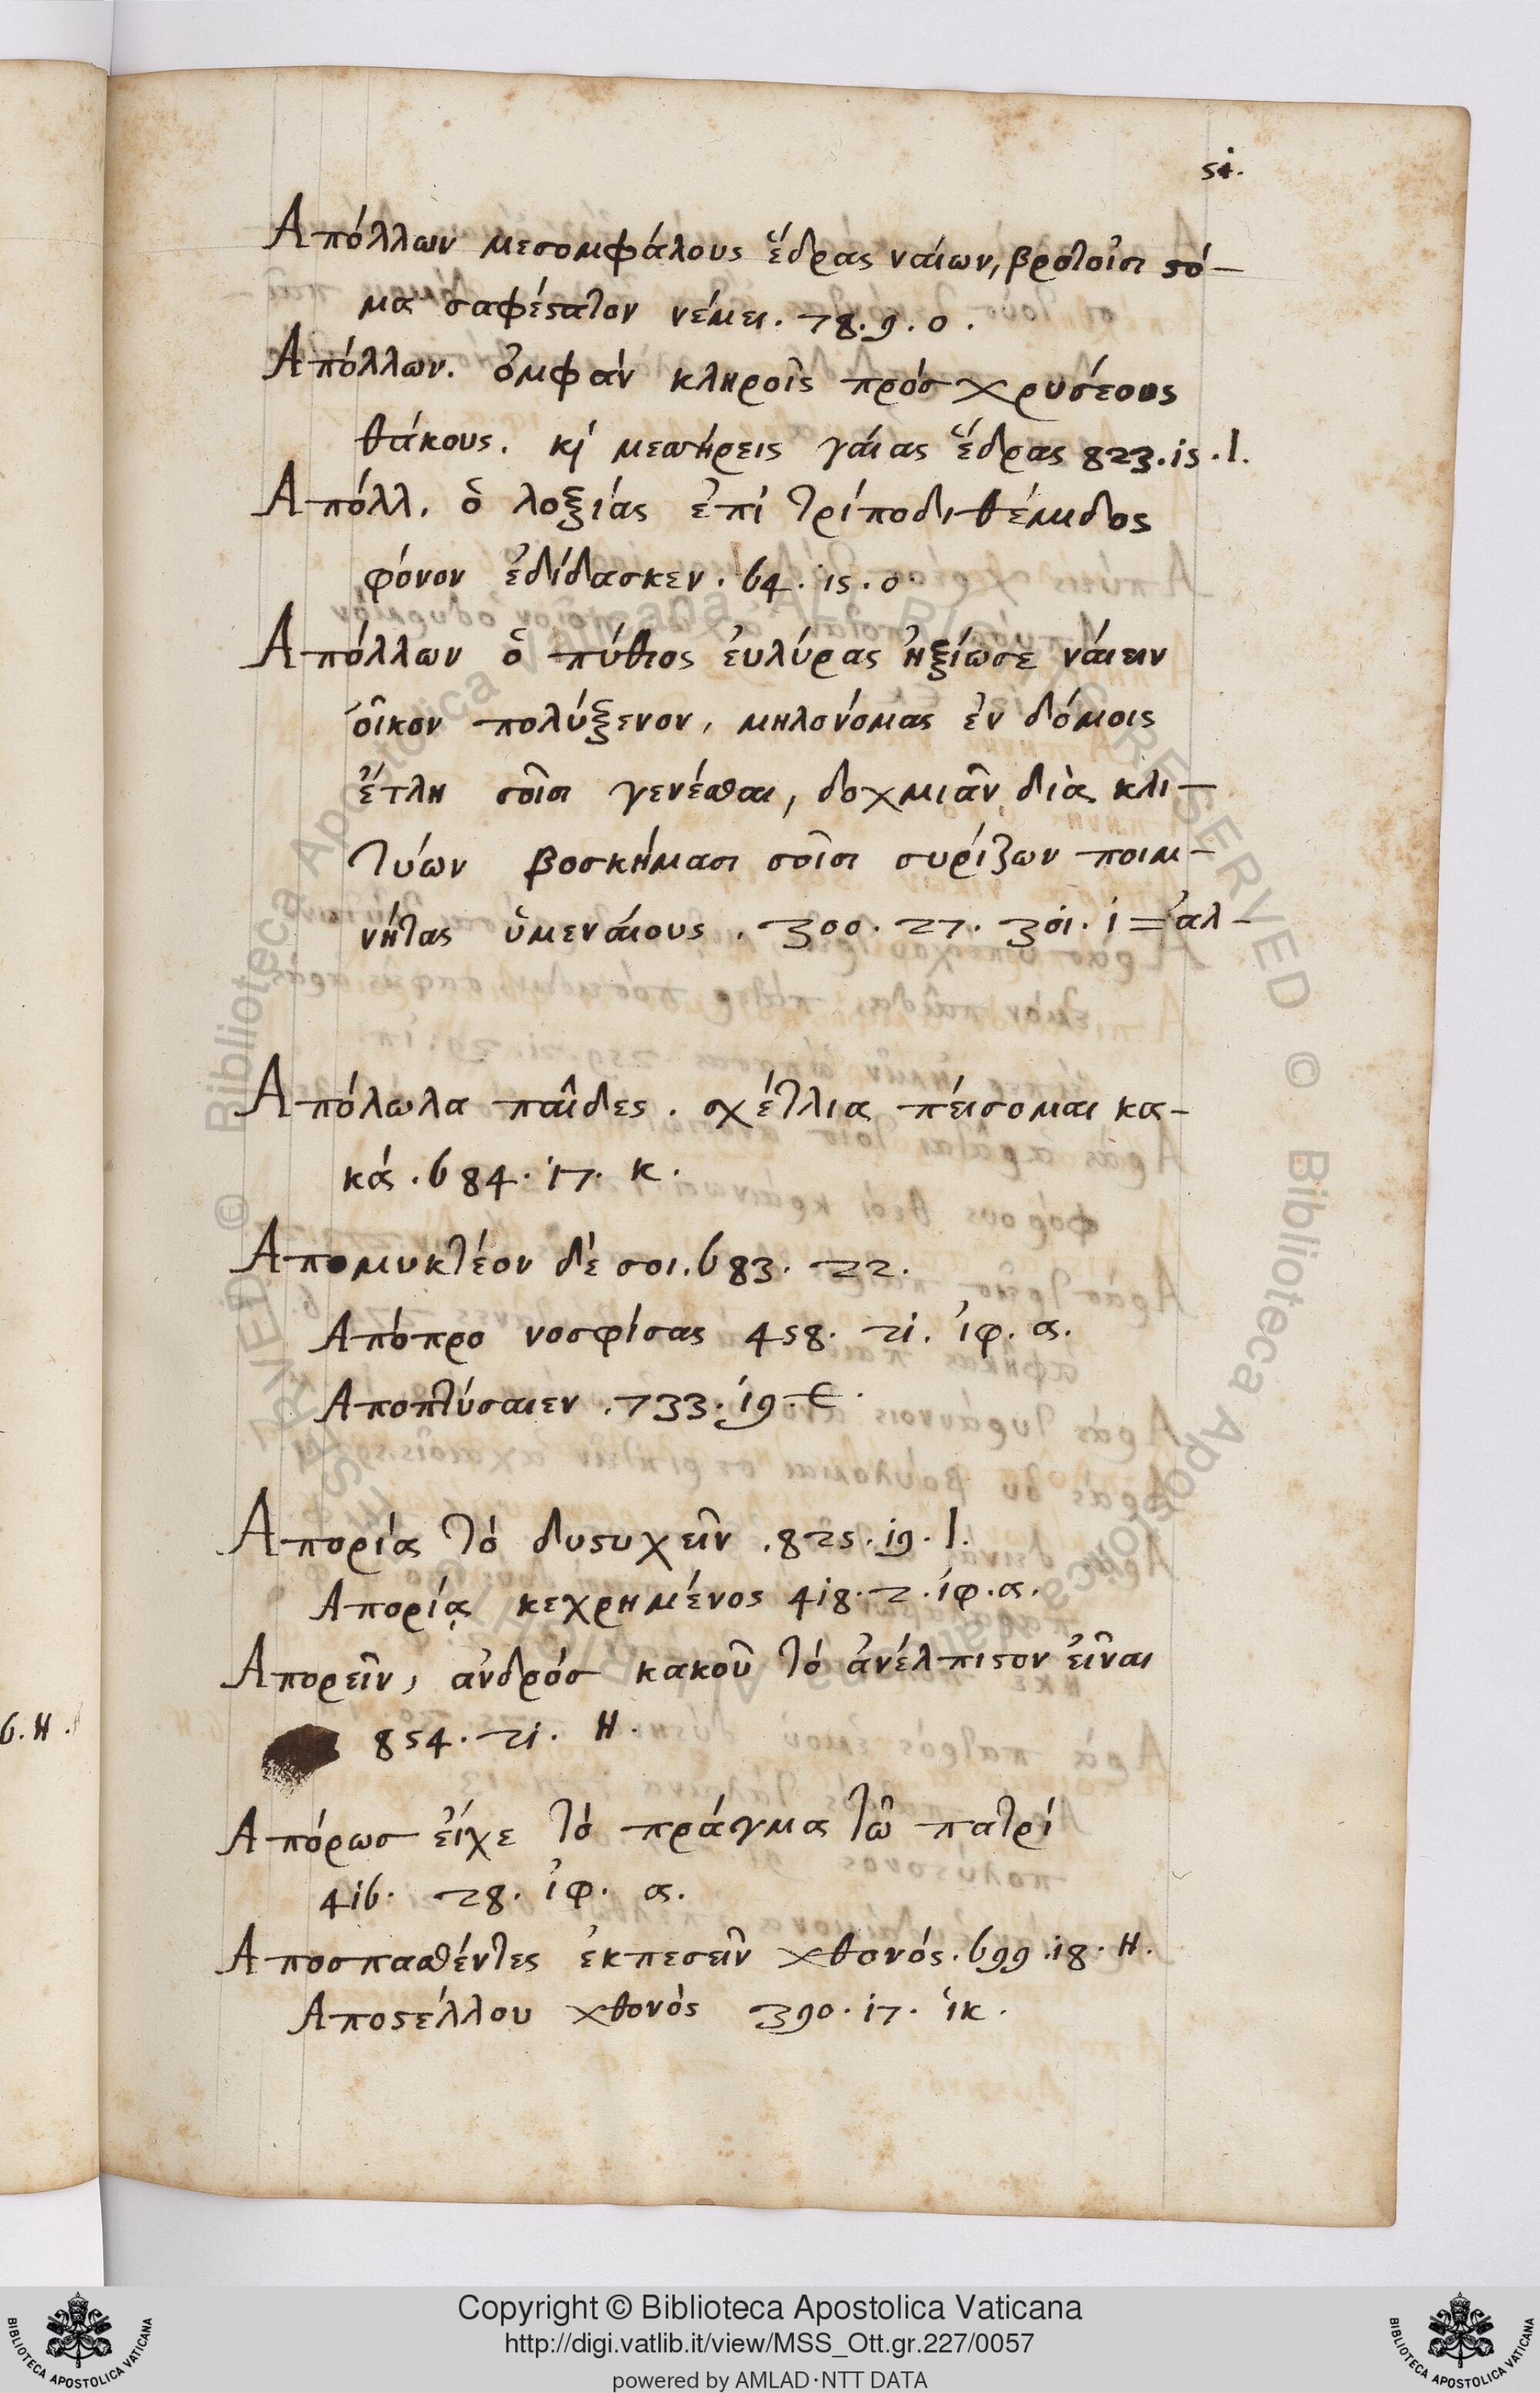 51.
Απόλλων μεσομφάλους ἕδρας νάιων, βροτοῖσι στό-
μα σαφέστατον νέμει. 78. 9. ο.
Απόλλων. ὀμφὰν κληροῖς πρόσ χρυσέους
θάκους. κỳ μεσήρεις γάιας ἕδρας 823. 15. Ι.
Απόλλ. ὁ λοξιάς ἐπὶ τρίποδι θέμιδος
φόνον ἐδίδασκεν. 64. 15. ο
Απόλλων ὁ πύθιος ἐυλύρας ἠξίωσε νάιειν
ὀῖκον πολύξενον, μηλονόμας ἐν δόμοις
ἔτλη σοῖσι γενέσθαι, δοχμιᾶν διὰ κλι-
τύων βοσκήμασι σοῖσι συρίζων ποιμ-
νήτας ὑμενάιους. 300. 27. 301. 1 = ἀλ-
Απόλωλα παῖδες. σχέτλια πέισομαι κα-
κά. 684. 17. κ.
Απομυκτέον δέ σοι. 683. 22.
Απόπρο νοσφίσας 458. 21. ἰφ. α.
Αποπτύσαιεν. 733. 19. ε.
Απορίας τό δυστυχεῖν. 825. 19. Ι.
Απορίᾳ κεχρημένος 418. 2. ἰφ. α.
Απορεῖν, ἀνδρόσ κακοῦ τό ἀνέλπιστον ἐῖναι
854. 21. Η.
Απόρωσ ἐίχε τό πράγμα τῶ πατρί
416. 28. ἰφ. α.
Αποσπασθέντες ἐκπεσεῖν χθονός. 699. 18. Η.
Αποστέλλου χθονὸς 390. 17. ἱκ.
6. Η.
© Biblioteca Apostolica Vaticana ALL RIGHTS RESERVED © Biblioteca Apostolica Vaticana ALL RIGHTS RESERVED
Copyright © Biblioteca Apostolica Vaticana
http://digi.vatlib.it/view/MSS_Ott.gr.227/0057
powered by AMLAD·NTT DATA
BIBLIOTECA APOSTOLICA VATICANA
BIBLIOTECA APOSTOLICA VATICANA